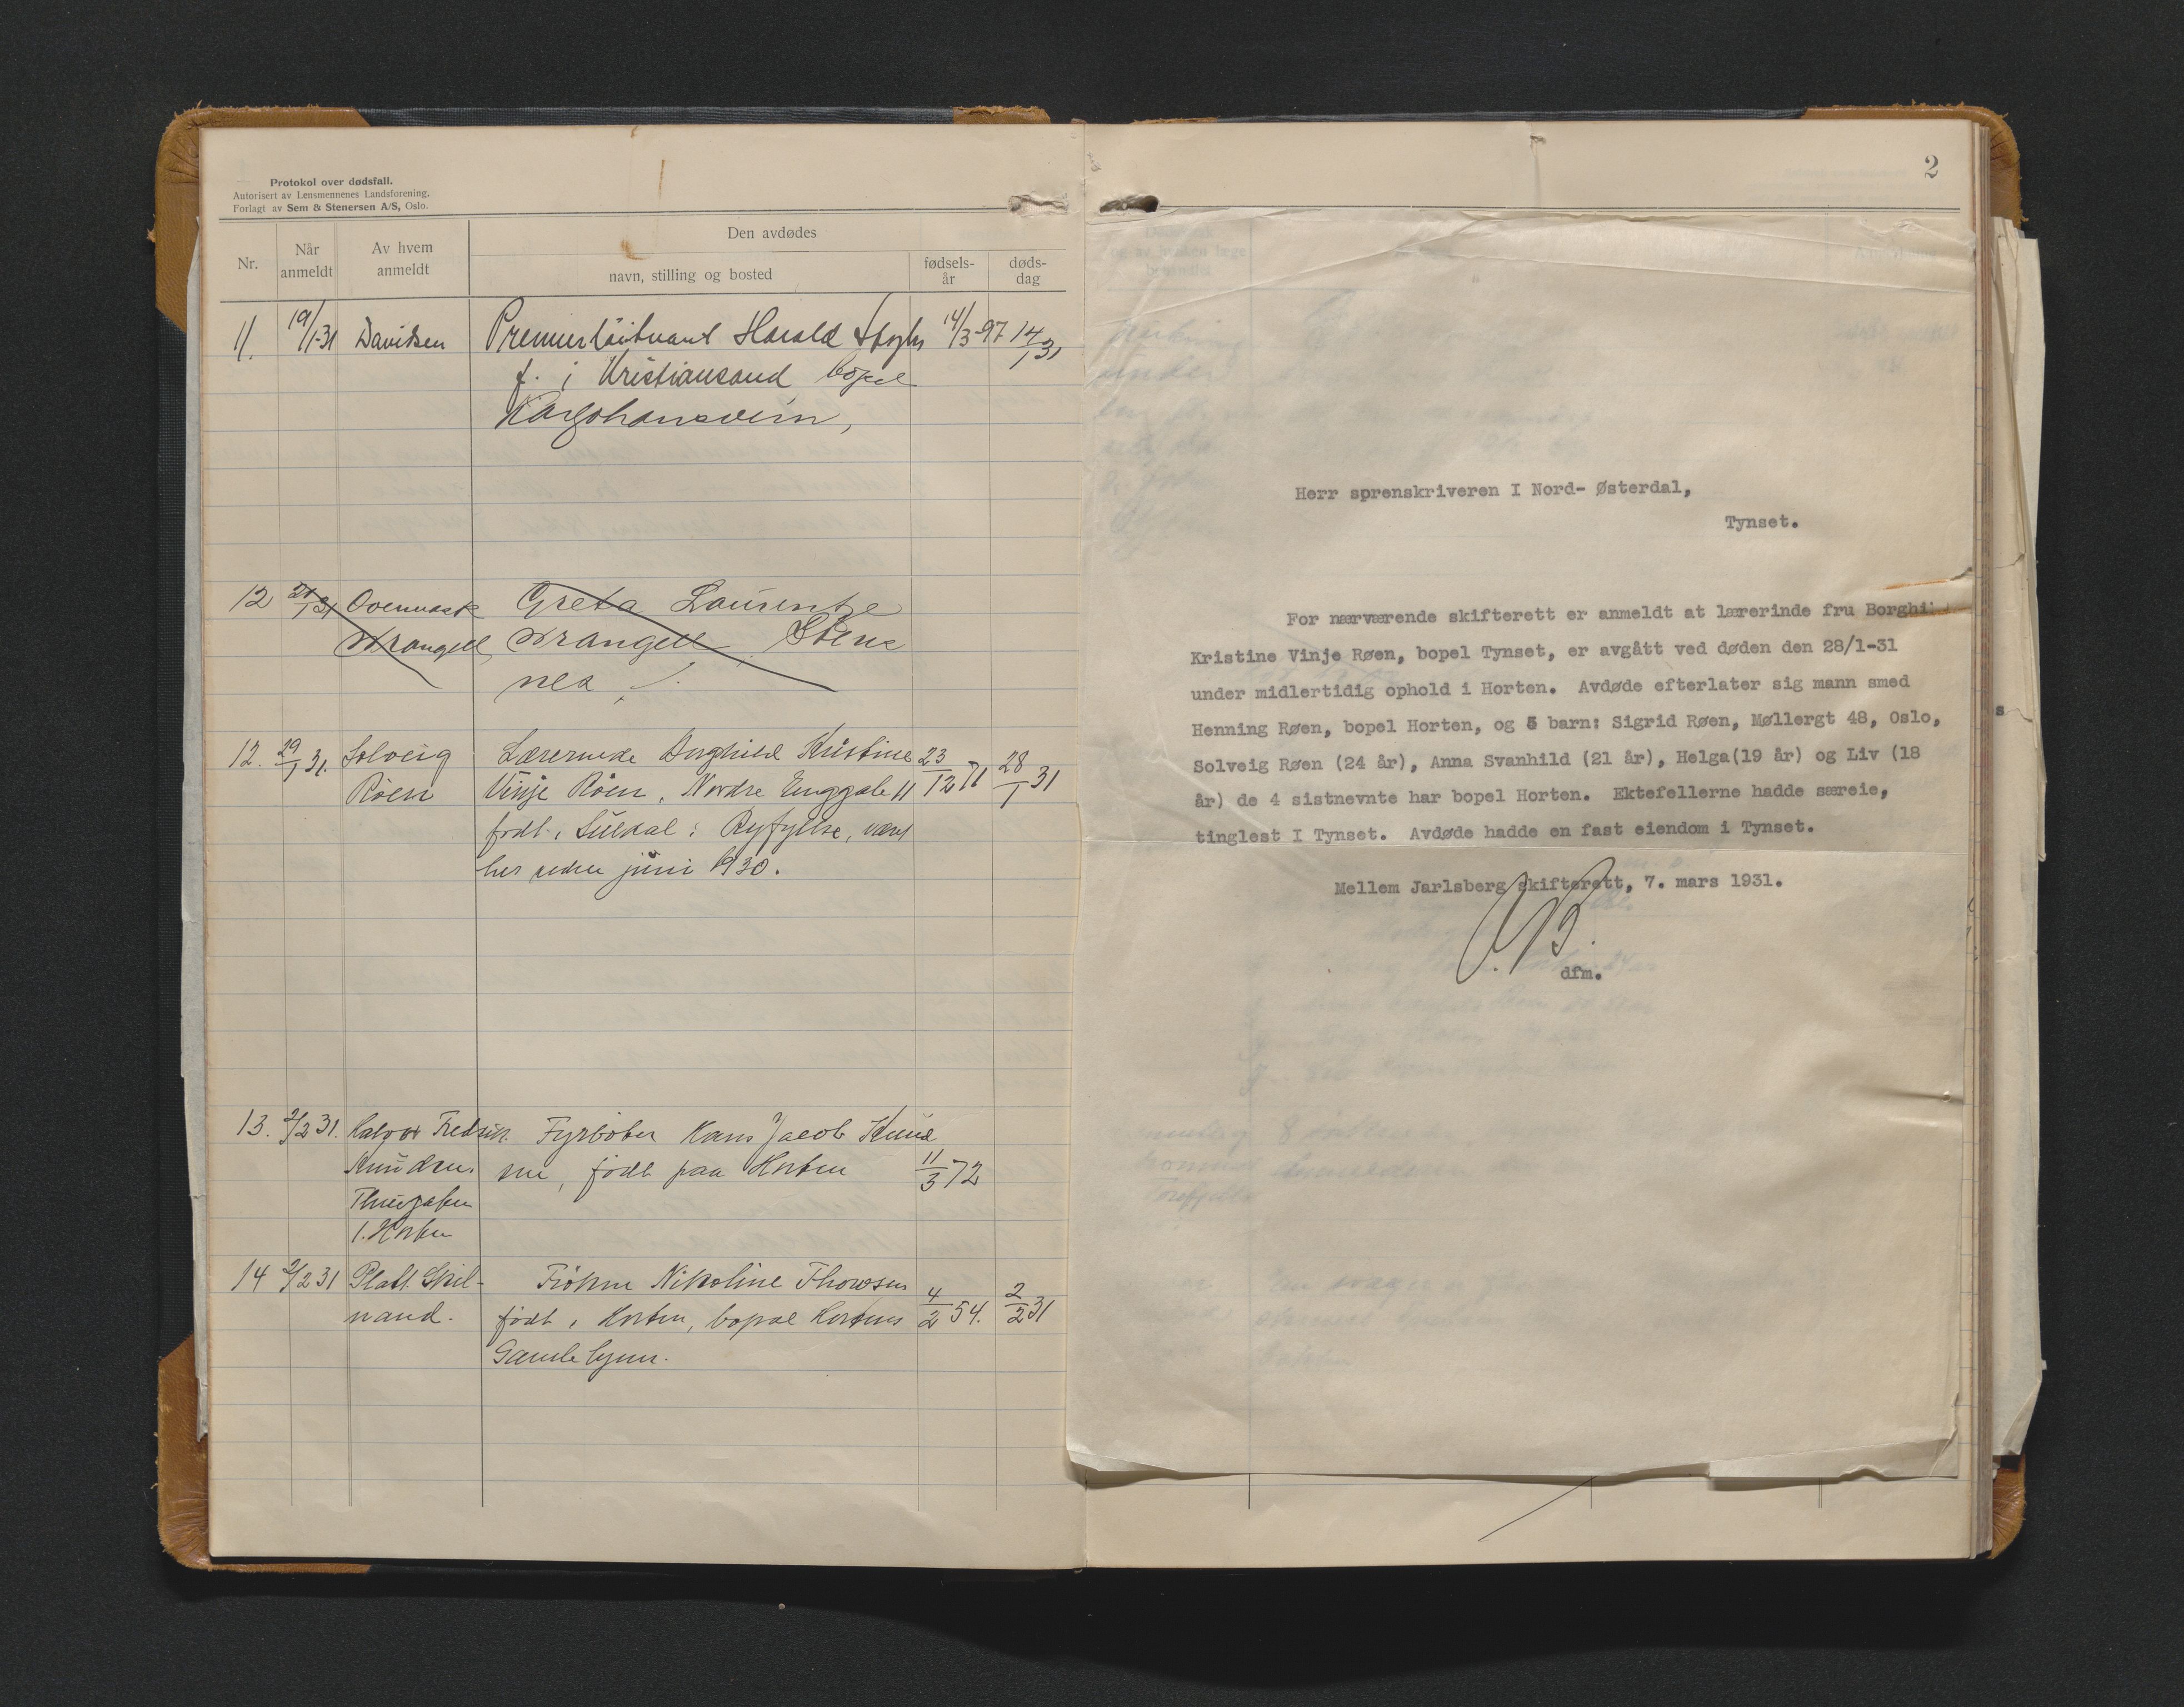 Protokol over dødsfall.
Autorisert av Lensmennenes Landsforening.
Forlagt av Sem & Stenersen A/S, Oslo.
Nr.
Når anmeldt
Av hvem anmeldt
Den avdødes
navn, stilling og bosted
fødsels-år
døds-dag
11. 19/1-31 Davidsen Premierløitnant Harald 14/3-97 14/1 31
f. i Kristiansand bopel
Karljohansvern,
12 21/1 31 Greta Laurentze
Wrangell, Wrangell, Stene
nes
12. 29/1 31. Solveig Lærerinde Borghild Kristine 23/12 71 28/1 31
Røen Vinje Røen, Nordre Enggate 11
født i Suldal i Ryfylke, vært
her siden juni 1930.
13. 2/2 31. Halvor Fredrik Fyrbøter Hans Jacob Knud
Knudsen. sen, født paa Horten 11/3 72
Thuegaten
1. Horten
14 2/2 31 Plass. Skil- Frøken Nikoline Thowsen 4/2 54. 2/2 31
nand. født i Horten, bopæl Hortens
Gamlehjem.
2
Herr sprenskriveren I Nord- Østerdal,
Tynset.
For nærværende skifterett er anmeldt at lærerinde fru Borghi
Kristine Vinje Røen, bopel Tynset, er avgått ved døden den 28/1-31
under midlertidig ophold i Horten. Avdøde efterlater sig mann smed
Henning Røen, bopel Horten, og 5 barn: Sigrid Røen, Møllergt 48, Oslo,
Solveig Røen (24 år), Anna Svanhild (21 år), Helga(19 år) og Liv (18
år) de 4 sistnevnte har bopel Horten. Ektefellerne hadde særeie,
tinglest I Tynset. Avdøde hadde en fast eiendom i Tynset.
Mellem Jarlsberg skifterett, 7. mars 1931.
dfm.